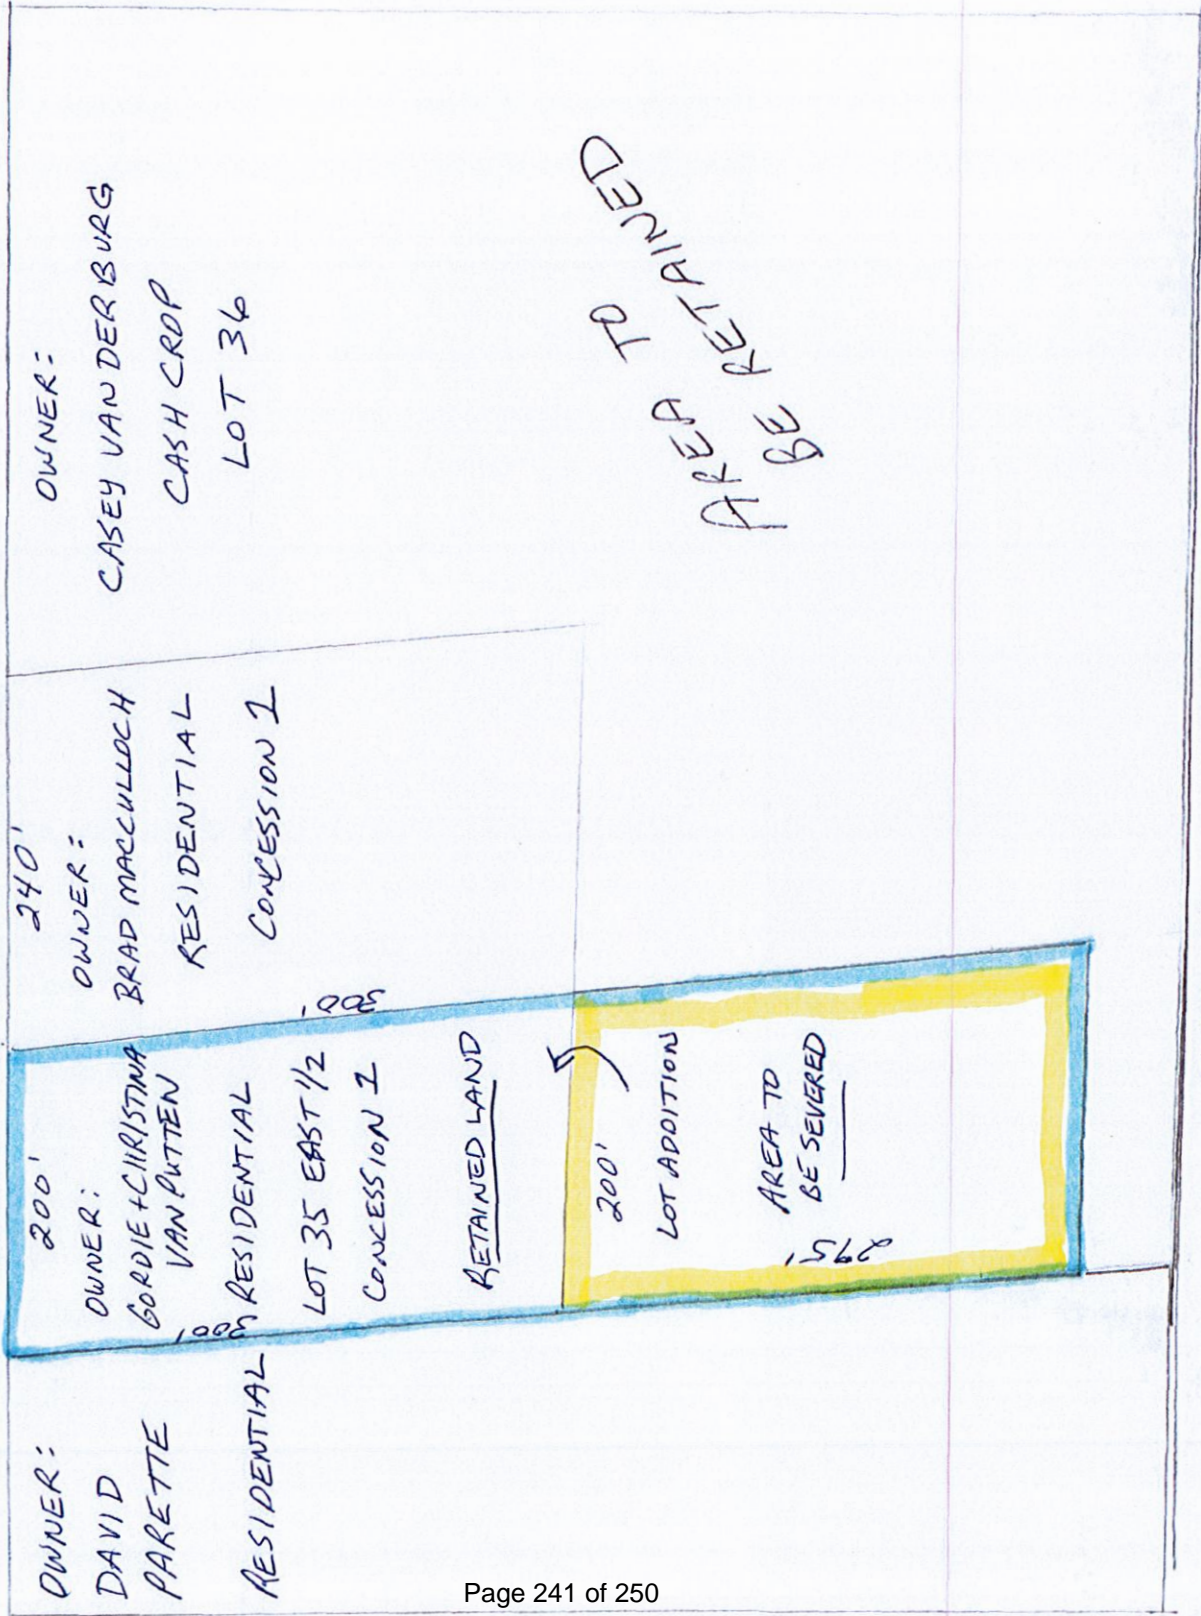 OWNER:
DAVID
PARETTE
RESIDENTIAL
200'
OWNER:
GORDIE + CHRISTINA
VAN PUTTEN
300'
RESIDENTIAL
LOT 35 EAST 1/2
CONCESSION 1
300'
RETAINED LAND
200'
LOT ADDITION
AREA TO
BE SEVERED
295'
240'
OWNER:
BRAD MACCULLOCH
RESIDENTIAL
CONCESSION 1
OWNER:
CASEY VANDERBURG
CASH CROP
LOT 36
AREA TO
BE RETAINED
Page 241 of 250